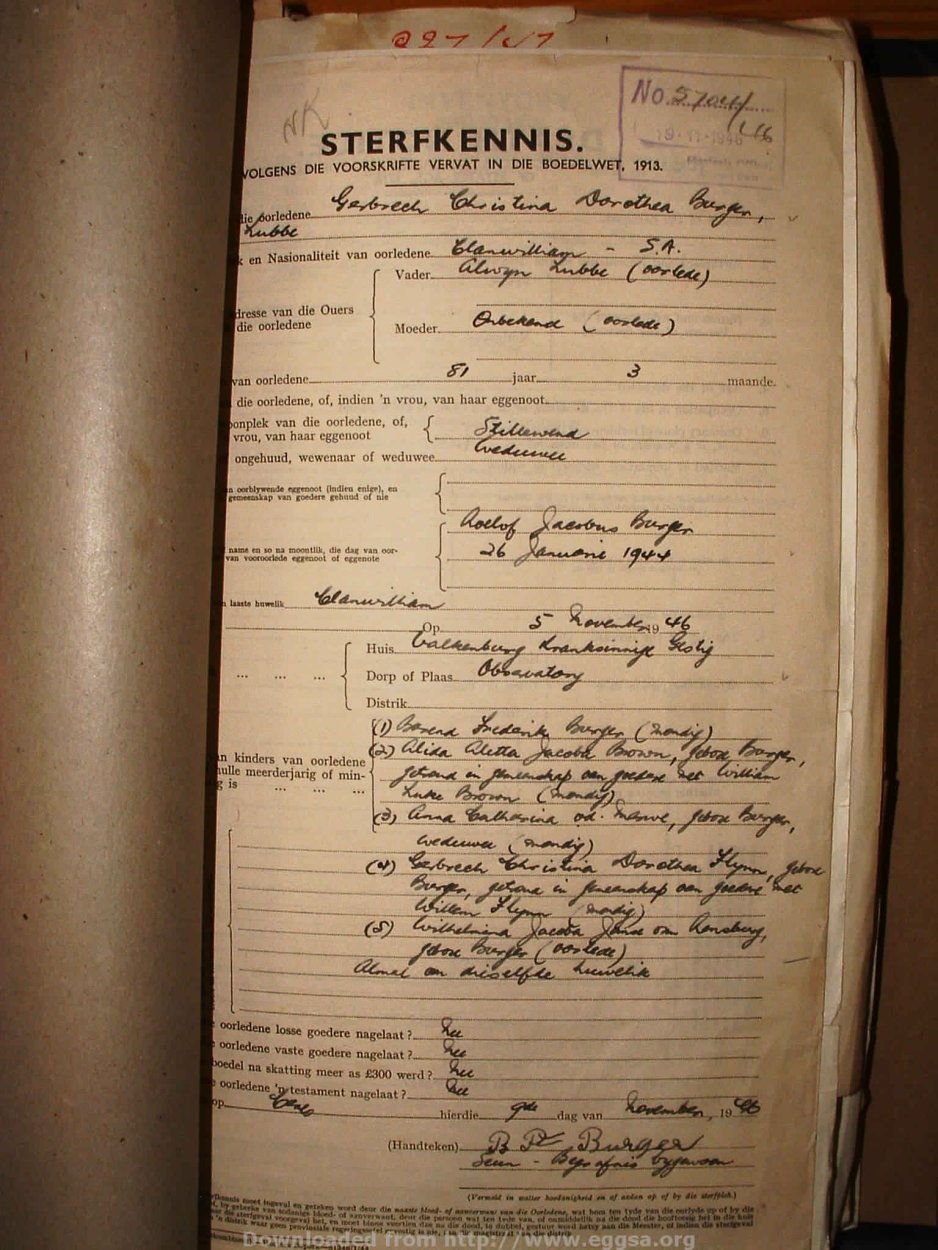 No. 5704/46
19-11-1946
NK
STERFKENNIS.
VOLGENS DIE VOORSKRIFTE VERVAT IN DIE BOEDELWET, 1913.
die oorledene Gerbrech Christina Dorothea Burger,
Lubbe
k en Nasionaliteit van oorledene Clanwilliam - S.A.
Vader Alwyn Lubbe (oorlede)
dresse van die Ouers
die oorledene
Moeder Onbekend (oorlede)
van oorledene 81 jaar 3 maande.
die oorledene, of, indien 'n vrou, van haar eggenoot
oonplek van die oorledene, of,
vrou, van haar eggenoot
ongehuud, wewenaar of weduwee Weduwee
an oorblywende eggenoot (indien enige), en
gemeenskap van goedere gehuud of nie
Roelof Jacobus Burger
name en so na moontlik, die dag van oor-
van vooroorlede eggenoot of eggenote
26 Januarie 1944
n laaste huwelik Clanwilliam
Op 5 November 1946
Huis Valkenburg Kranksinnige Gestig
... ... ... Dorp of Plaas Observatory
Distrik
(1) Barend Frederik Burger (mondig)
(2) Alida Aletta Jacoba Brown, gebore Burger,
an kinders van oorledene
hulle meerderjarig of min-
g is ... ... ...
getroud in gemeenskap van goedere met William
Luke Brown (mondig)
(3) Anna Catharina v.d. Merwe, gebore Burger,
weduwee (mondig)
(4) Gerbrech Christina Dorothea Flynn, gebore
Burger, getroud in gemeenskap van goedere met
Willem Flynn (mondig)
(5) Wilhelmina Jacoba Janse van Rensburg,
gebore Burger (oorlede)
Almal van dieselfde huwelik
oorledene losse goedere nagelaat? Nee
oorledene vaste goedere nagelaat? Nee
boedel na skatting meer as £300 werd? Nee
oorledene 'n testament nagelaat? Nee
op Ceres hierdie 9de dag van November, 1946
(Handteken) B F Burger
Seun - Begrafnis bygewoon
(Vermeld in watter hoedanigheid en of anders op of by die sterfplek.)
Downloaded from http://www.eggsa.org